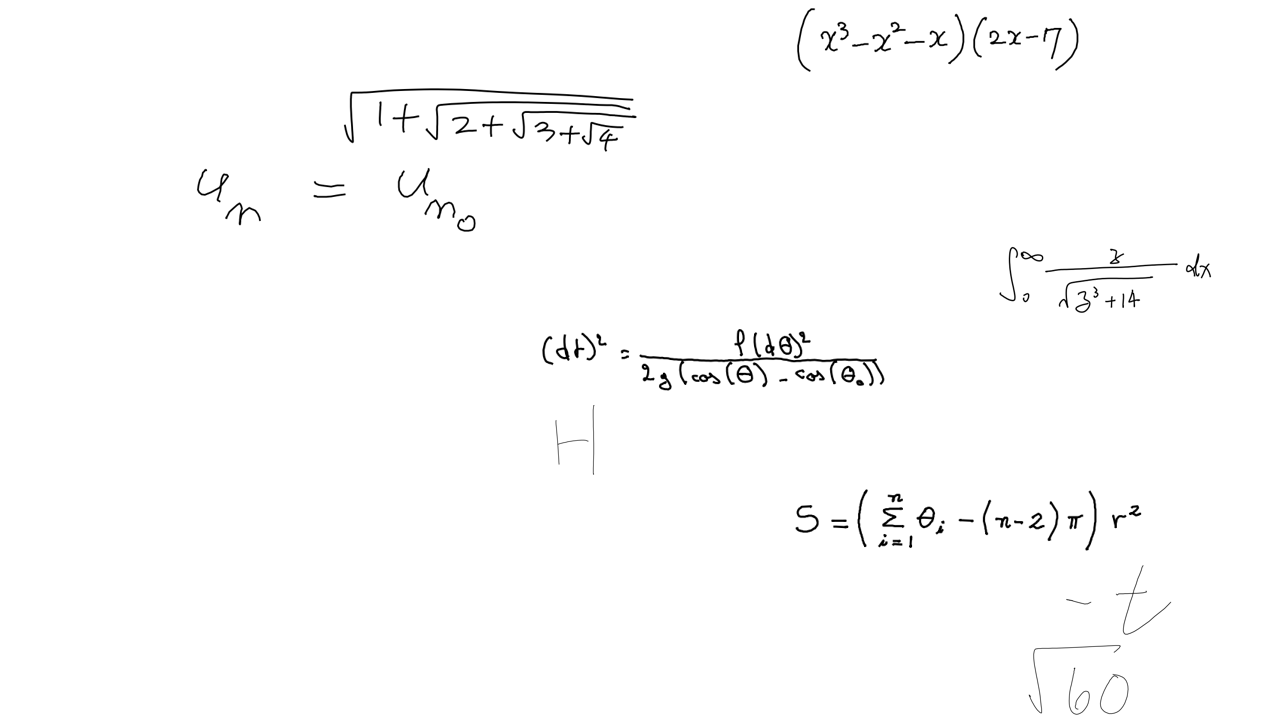 (x³-x²-x)(2x-7)
√(1+√(2+√(3+√4)))
u_n = u_{n_0}
∫_0^∞ z/√(z³+14) dx
(dt)² = l(dθ)²/(2g(cos(θ)-cos(θ_0)))
H
S = (∑_{i=1}^n θ_i - (n-2)π) r²
-t
√60